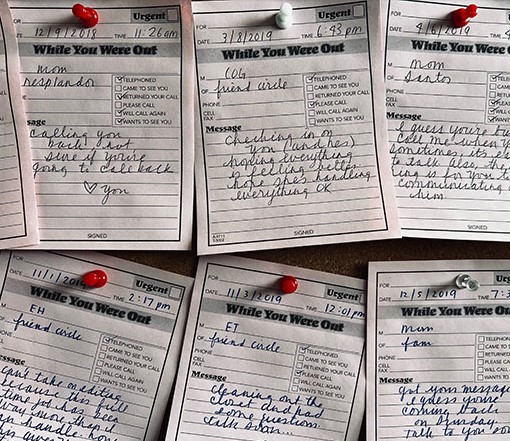 FOR
DATE 12/9/2018 TIME 11:26am
Urgent
While You Were Out
mom
resplandor
TELEPHONED
CAME TO SEE YOU
RETURNED YOUR CALL
PLEASE CALL
WILL CALL AGAIN
WANTS TO SEE YOU
Message
calling you
back not
sure if you're
going to call back
♡ you
SIGNED
FOR
DATE 3/8/2019 TIME 6:43 pm
Urgent
While You Were Out
M COG
OF friend circle
PHONE
CELL
FAX
TELEPHONED
CAME TO SEE YOU
RETURNED YOUR CALL
PLEASE CALL
WILL CALL AGAIN
WANTS TO SEE YOU
Message
Checking in on
you (and has)
hoping everything
is feeling better
hope she's handling
everything OK
SIGNED
FOR
DATE 4/6/2019
Urgent
While You Were Out
M mom
OF santos
PHONE
CELL
FAX
TELEPHONED
CAME TO SEE YOU
RETURNED YOUR CALL
PLEASE CALL
WILL CALL AGAIN
WANTS TO SEE YOU
Message
I guess you're
call me when
sometimes, it's
to talk Also, th
ing is for you t
communicating
him
FOR
DATE 11/1/2019 TIME 2:17pm
Urgent
While You Were Out
M EH
OF friend circle
PHONE
CELL
TELEPHONED
CAME TO SEE YOU
RETURNED YOUR CALL
PLEASE CALL
WILL CALL AGAIN
WANTS TO SEE YOU
Message
can't take on editing
because this full
time job has been
way more than I
can handle now
FOR
DATE 11/3/2019 TIME 12:01pm
Urgent
While You Were Out
M ET
OF friend circle
PHONE
CELL
FAX
TELEPHONED
CAME TO SEE YOU
RETURNED YOUR CALL
PLEASE CALL
WILL CALL AGAIN
WANTS TO SEE YOU
Message
Cleaning out the
closet and had
some questions.
talk soon
FOR
DATE 12/5/2019 TIME
Urgent
While You Were Out
M mom
OF fam
PHONE
CELL
FAX
TELEPHONED
CAME TO SEE YOU
RETURNED YOUR CALL
PLEASE CALL
WILL CALL AGAIN
WANTS TO SEE YOU
Message
got your message
I guess you're
coming back
on Sunday.
Talk to you